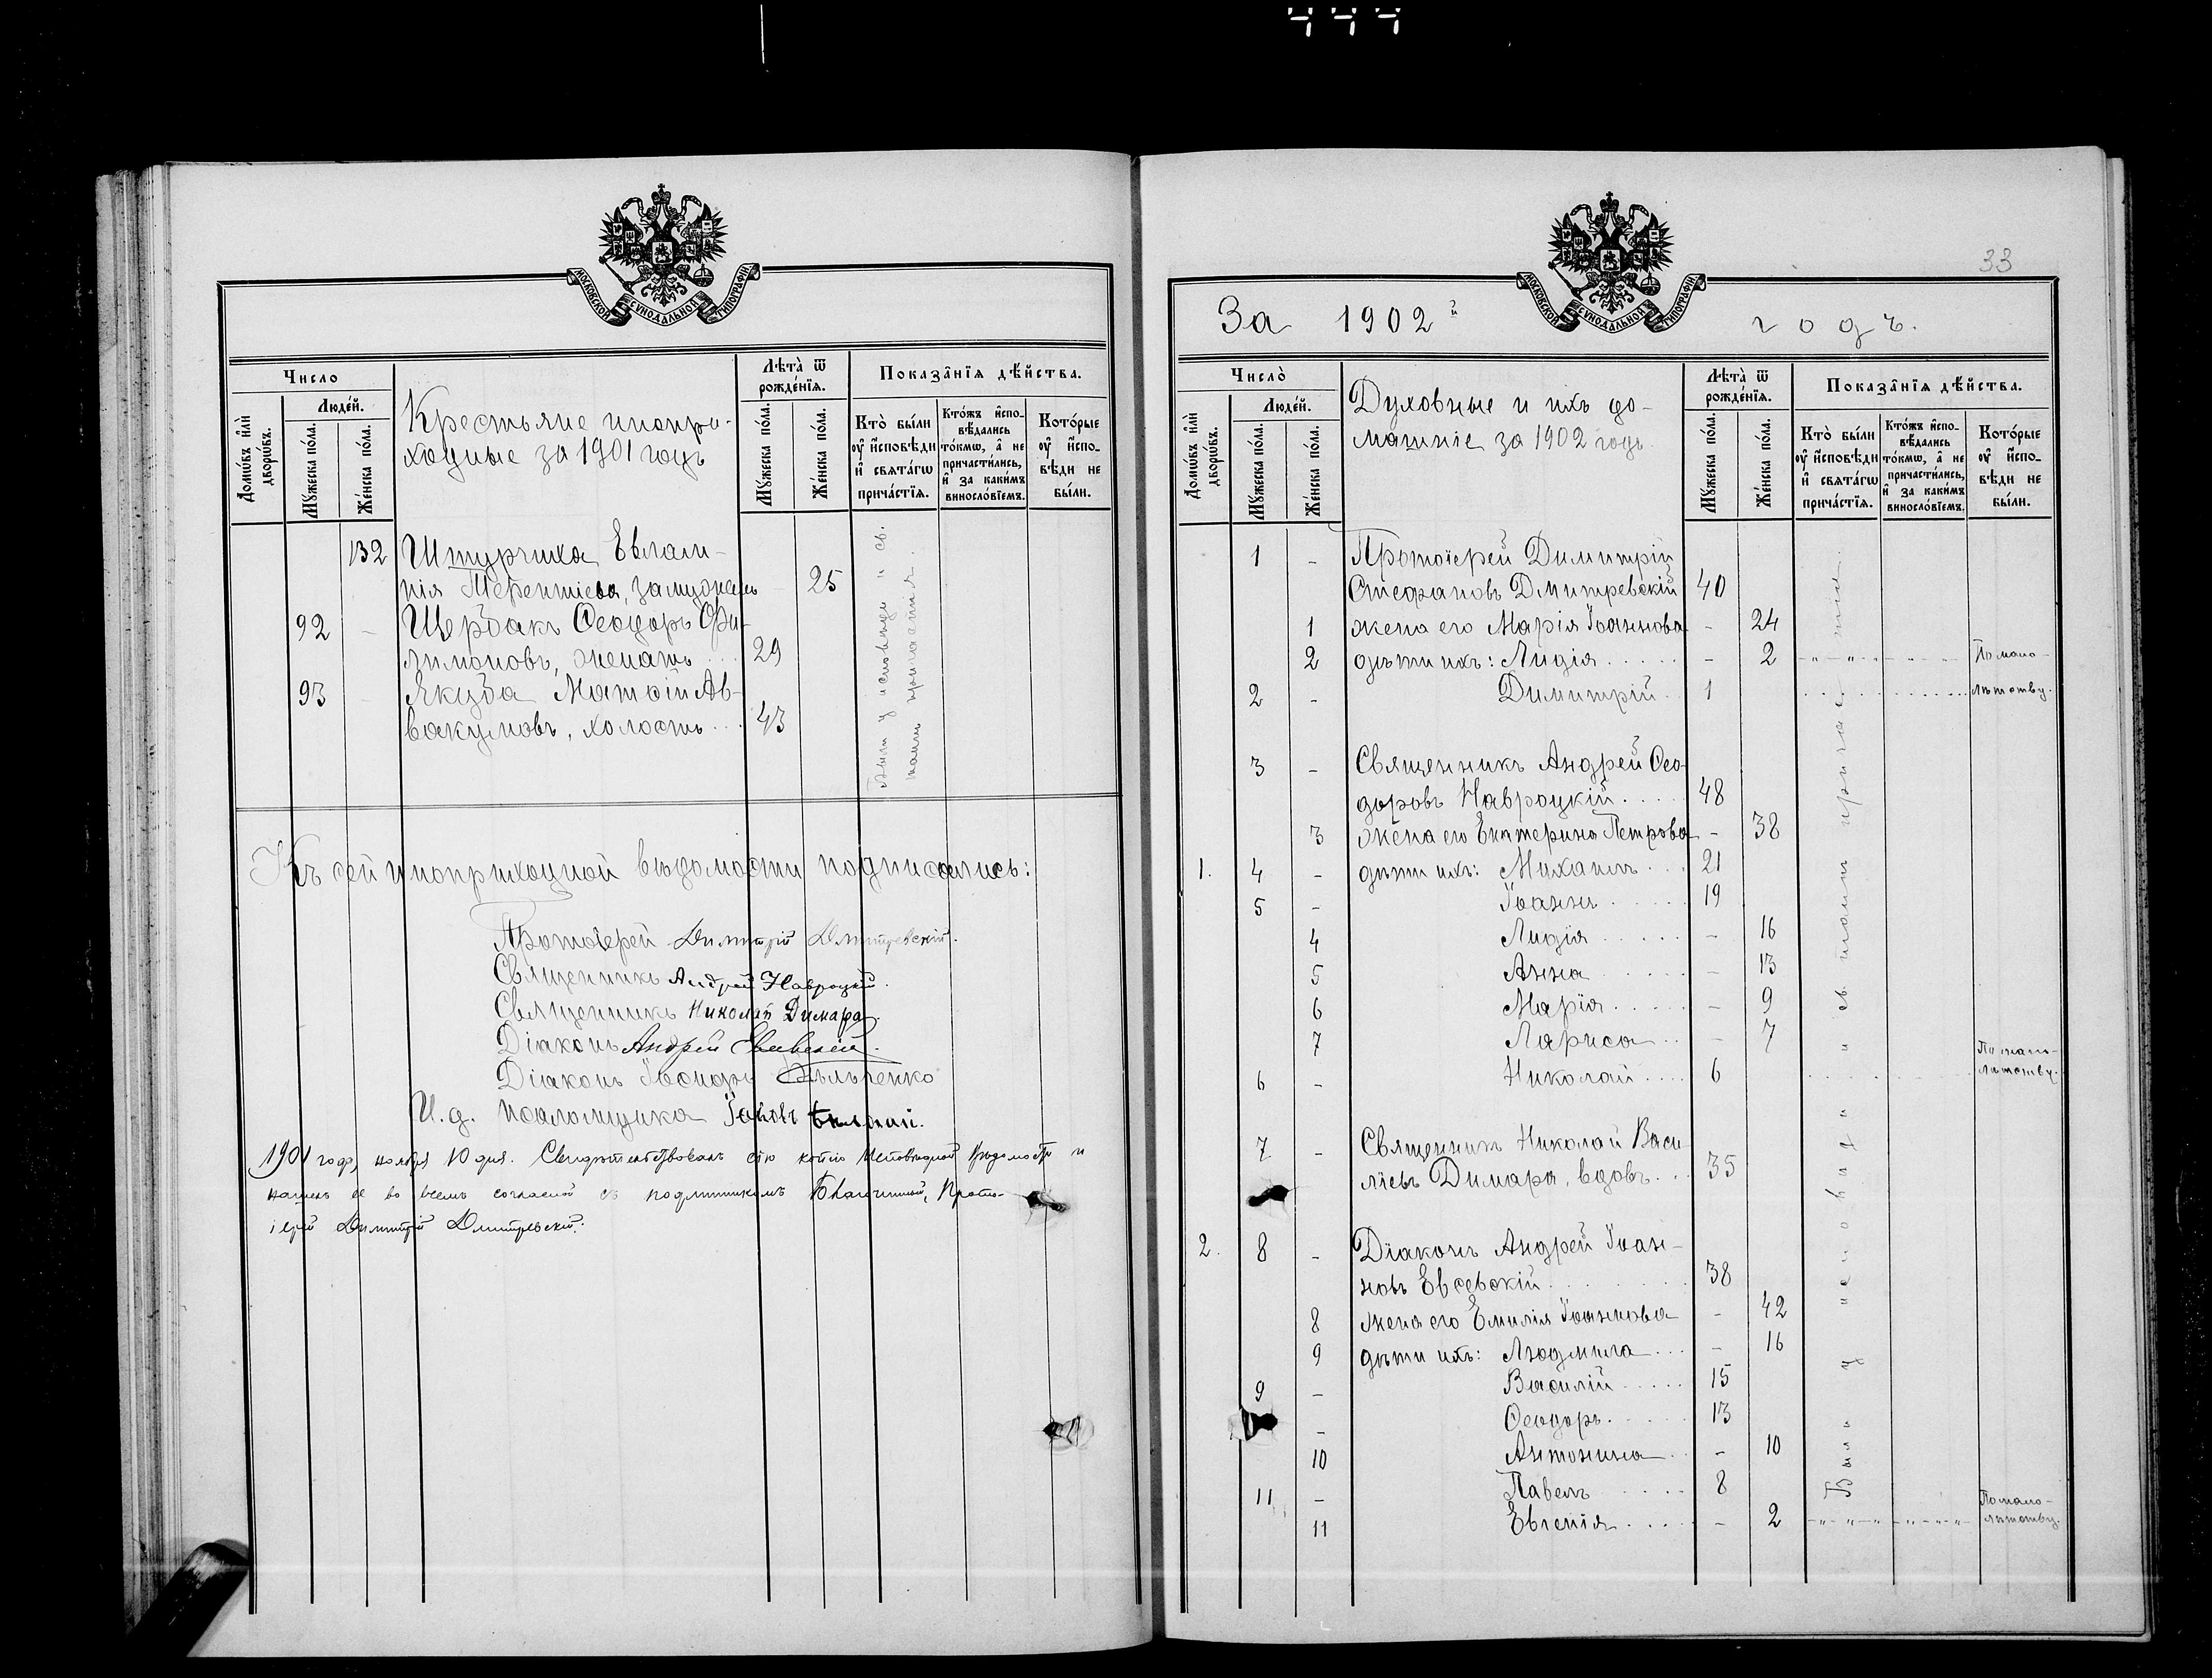 МОСКОВСКОЙ СѴНОДАЛЬНОЙ ТИПОГРАФІИ.
Число
Людей.
Домѡвъ или дворѡвъ.
Мꙋжеска пола.
Женска пола.
Крестьяне инопри-
ходные за 1901 годъ
Лѣта ѿ рожденїѧ.
Мꙋжеска пола.
Женска пола.
Показанїѧ дѣйства.
Кто были оу исповѣди и свѧтагѡ причастїѧ.
Ктожъ испо-вѣдались токмѡ, а не причастились, и за какимъ винословїемъ.
Которые оу испо-вѣди не были.
132 Штурчиха Евлам-
пія Терентіева, замужемъ 25
92 - Щербакъ Ѳеодоръ Фи-
лимоновъ, женатъ ... 29
93 - Якуба Матѳій Ав-
вакумовъ, холостъ ... 43
Были у исповѣди и св.
таинъ причастія.
Къ сей иноприходной вѣдомости подписались:
Протоіерей Димитрій Дмитревскій.
Священникъ Андрей Навроцкій.
Священникъ Николай Димара.
Діаконъ Андрей Евсевскій.
Діаконъ Іосифъ
И. д. псаломщика Іаковъ
1901 года, ноября 10 дня. Свидѣтельствовалъ сію копію исповѣдной вѣдомости и
нашелъ ее во всемъ согласной съ подлинникомъ Благочинный, Прото-
іерей Димитрій Дмитревскій.
33
МОСКОВСКОЙ СѴНОДАЛЬНОЙ ТИПОГРАФІИ.
За 1902й годъ.
Число
Людей.
Домѡвъ или дворѡвъ.
Мꙋжеска пола.
Женска пола.
Духовные и ихъ до-
машніе за 1902 годъ
Лѣта ѿ рожденїѧ.
Мꙋжеска пола.
Женска пола.
Показанїѧ дѣйства.
Кто были оу исповѣди и свѧтагѡ причастїѧ.
Ктожъ испо-вѣдались токмѡ, а не причастились, и за какимъ винословїемъ.
Которые оу испо-вѣди не были.
1 - Протоіерей Димитрій
Стефановъ Дмитревскій 40
1 жена его Марія Іоаннова - 24
2 дѣти ихъ: Лидія ..... - 2 По мало-
2 - Димитрій . 1 лѣтству.
3 - Священникъ Андрей Ѳео-
доровъ Навроцкій ..... 48
3 жена его Екатерина Петрова - 38
1. 4 - дѣти ихъ: Михаилъ ... 21
5 - Іоаннъ ..... 19
4 Лидія ..... - 16
5 Анна ..... - 13
6 Марія ..... - 9
7 Лариса .. - 7
6 - Николай .... 6 По мало-
лѣтству.
7 - Священникъ Николай Васи
ліевъ Димара, вдовъ ... 35
2. 8 - Діаконъ Андрей Іоан-
новъ Евсевскій ........ 38
8 жена его Емилія Іоаннова - 42
9 дѣти ихъ: Людмила ... - 16
9 - Василій ..... 15
- Ѳеодоръ ..... 13
10 Антонина .. - 10
11 - Павелъ .... 8
11 Евгенія .... - 2 По мало-
лѣтству.
Были у исповѣди и св. таинъ причастія.